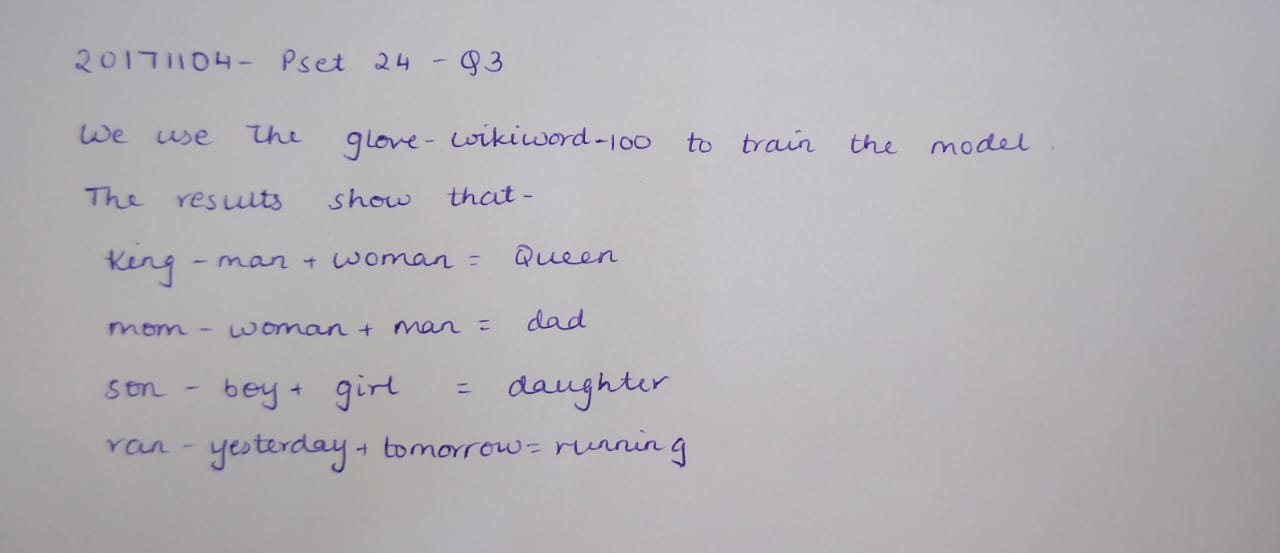 20171104- Pset 24 - Q3
We use the glove-wikiword-100 to train the model.
The results show that-
King - man + woman = Queen
mom - woman + man = dad
son - boy + girl = daughter
ran - yesterday + tomorrow = running